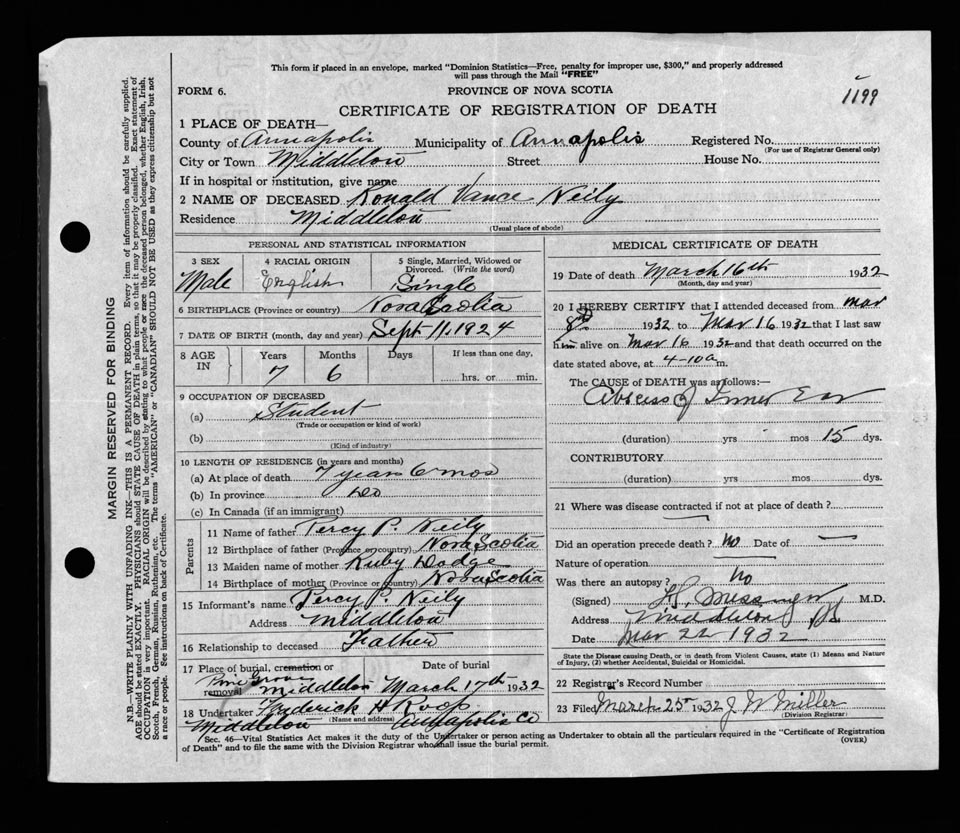 This form if placed in an envelope, marked "Dominion Statistics—Free, penalty for improper use, $300," and properly addressed
will pass through the Mail "FREE"
FORM 6.
PROVINCE OF NOVA SCOTIA
1199
CERTIFICATE OF REGISTRATION OF DEATH
1 PLACE OF DEATH—
County of Annapolis Municipality of Annapolis Registered No.
(For use of Registrar General only)
City or Town Middleton Street House No.
If in hospital or institution, give name
2 NAME OF DECEASED Ronald Vance Neily
Residence Middleton
(Usual place of abode)
PERSONAL AND STATISTICAL INFORMATION
3 SEX 4 RACIAL ORIGIN 5 Single, Married, Widowed or
Divorced. (Write the word)
Male English Single
6 BIRTHPLACE (Province or country) Nova Scotia
7 DATE OF BIRTH (month, day and year) Sept 11, 1924
8 AGE IN Years Months Days If less than one day,
7 6 hrs. or min.
9 OCCUPATION OF DECEASED
(a) Student
(Trade or occupation or kind of work)
(b)
(Kind of industry)
10 LENGTH OF RESIDENCE (in years and months)
(a) At place of death 7 years 6 mos
(b) In province Do
(c) In Canada (if an immigrant)
Parents
11 Name of father Percy P. Neily
12 Birthplace of father (Province or country) Nova Scotia
13 Maiden name of mother Ruby Dodge
14 Birthplace of mother (Province or country) Nova Scotia
15 Informant's name Percy P. Neily
Address Middleton
16 Relationship to deceased Father
17 Place of burial, cremation or Date of burial
Pine Grove
removal Middleton March 17th 1932
18 Undertaker Frederick H Roop
(Name and address)
Middleton Annapolis Co
MEDICAL CERTIFICATE OF DEATH
19 Date of death March 16th 1932
(Month, day and year)
20 I HEREBY CERTIFY that I attended deceased from Mar
8th 1932 to Mar 16 1932 that I last saw
him alive on Mar 16 1932 and that death occurred on the
date stated above, at 4-10 a m.
The CAUSE of DEATH was as follows:—
Abscess of Inner Ear
(duration) yrs mos 15 dys.
CONTRIBUTORY
(duration) yrs mos dys.
21 Where was disease contracted if not at place of death?
Did an operation precede death? No Date of —
Nature of operation
Was there an autopsy? No
(Signed) Messenger M.D.
Address Middleton
Date Mar 22 1932
State the Disease causing Death, or in death from Violent Causes, state (1) Means and Nature
of Injury, (2) whether Accidental, Suicidal or Homicidal.
22 Registrar's Record Number
23 Filed March 25th 1932 J W Miller
(Division Registrar)
Sec. 46—Vital Statistics Act makes it the duty of the Undertaker or person acting as Undertaker to obtain all the particulars required in the "Certificate of Registration
of Death" and to file the same with the Division Registrar who shall issue the burial permit.
(OVER)
MARGIN RESERVED FOR BINDING
N.B.—WRITE PLAINLY WITH UNFADING INK—THIS IS A PERMANENT RECORD. Every item of information should be carefully supplied.
AGE should be stated EXACTLY. PHYSICIANS should STATE CAUSE OF DEATH in plain terms, so that it may be properly classified. Exact statement of
OCCUPATION is very important. RACIAL ORIGIN will be described by stating to what people or race the deceased person belonged, whether English, Irish,
Scotch, French, German, Russian, Ruthenian, etc. The terms "AMERICAN" or "CANADIAN" SHOULD NOT BE USED as they express citizenship but not
a race or people. See instructions on back of Certificate.